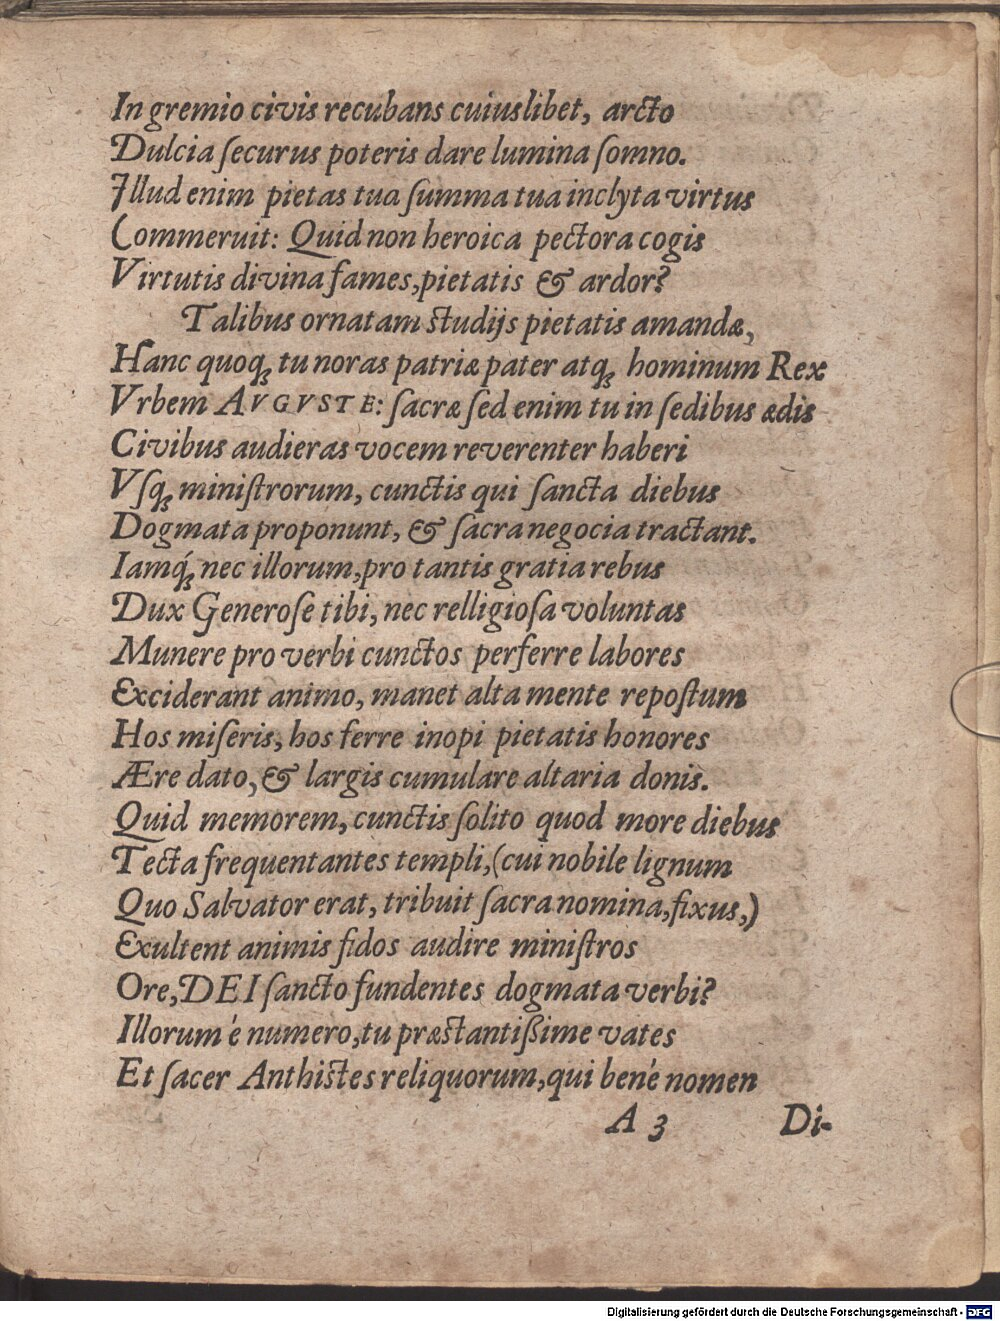 In gremio civis recubans cuiuslibet, arcto
Dulcia ſecurus poteris dare lumina ſomno.
Illud enim pietas tua ſumma tua inclyta virtus
Commeruit: Quid non heroica pectora cogis
Virtutis divina fames, pietatis & ardor?
Talibus ornatam ſtudijs pietatis amandæ,
Hanc quoq́ꝫ tu noras patriæ pater atqꝫ hominum Rex
Vrbem AVGVSTE: ſacræ ſed enim tu in ſedibus ædis
Civibus audieras vocem reverenter haberi
Vſqꝫ miniſtrorum, cunctis qui ſancta diebus
Dogmata proponunt, & ſacra negocia tractant.
Iamq́ꝫ nec illorum, pro tantis gratia rebus
Dux Generoſe tibi, nec relligioſa voluntas
Munere pro verbi cunctos perferre labores
Exciderant animo, manet alta mente repoſtum
Hos miſeris, hos ferre inopi pietatis honores
Ære dato, & largis cumulare altaria donis.
Quid memorem, cunctis ſolito quod more diebus
Tecta frequentantes templi, (cui nobile lignum
Quo Salvator erat, tribuit ſacra nomina, fixus,)
Exultent animis fidos audire miniſtros
Ore, DEI ſancto fundentes dogmata verbi?
Illorum è numero, tu præſtantißime vates
Et ſacer Anthiſtes reliquorum, qui benè nomen
A 3 Di-
Digitalisierung gefördert durch die Deutsche Forschungsgemeinschaft - DFG